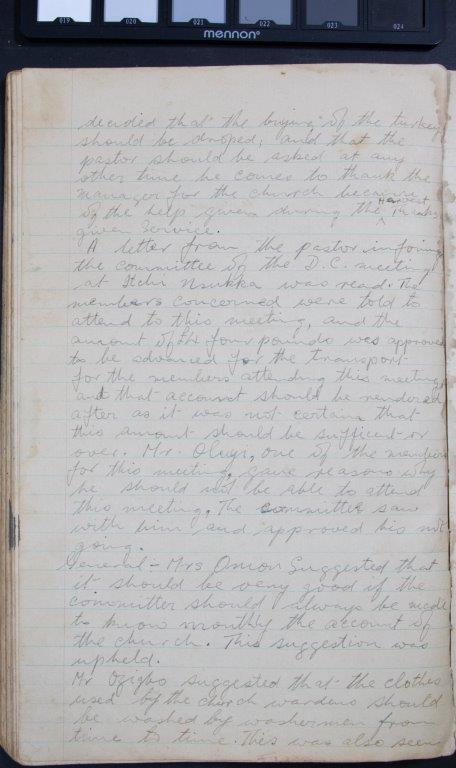 019 020 021 022 023 024
mennon
decided that the buying of the turkey
should be droped; and that the
pastor should be asked at any
other time he comes to thank the
manager for the church because
of the help given during the Harvest Thanks
given Service.
A letter from the pastor infoming
the committee of the D.C. meeting
at Itchi Nsukka was read. The
members concerned were told to
attend to this meeting, and the
amount of the four pounds was approved
to be advanced for the transport
for the members attending this meeting,
and that account should be rendered
after as it was not certain that
this amount should be sufficient or
over. Mr. Oluyi, one of the members
for this meeting, gave reasons why
he should not be able to attend
this meeting. The committee saw
with him and approved his not
going.
General - Mrs Onuora Suggested that
it should be very good if the
committee should always be made
to know monthly the account of
the church. This suggestion was
upheld.
Mr Ozigbo suggested that the clothes
used by the church wardens should
be washed by washermen from
time to time. This was also seen